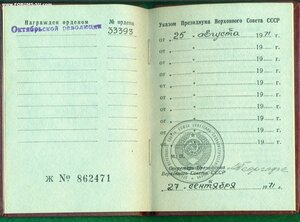 Награжден орденом
Октябрьской революции
№ ордена
33393
Ж № 862471
Указом Президиума Верховного Совета СССР
от 25 августа 1971 г.
от 19 г.
от 19 г.
от 19 г.
от 19 г.
от 19 г.
от 19 г.
М. П.
Секретарь Президиума
Верховного Совета СССР
27 сентября 1971 г.